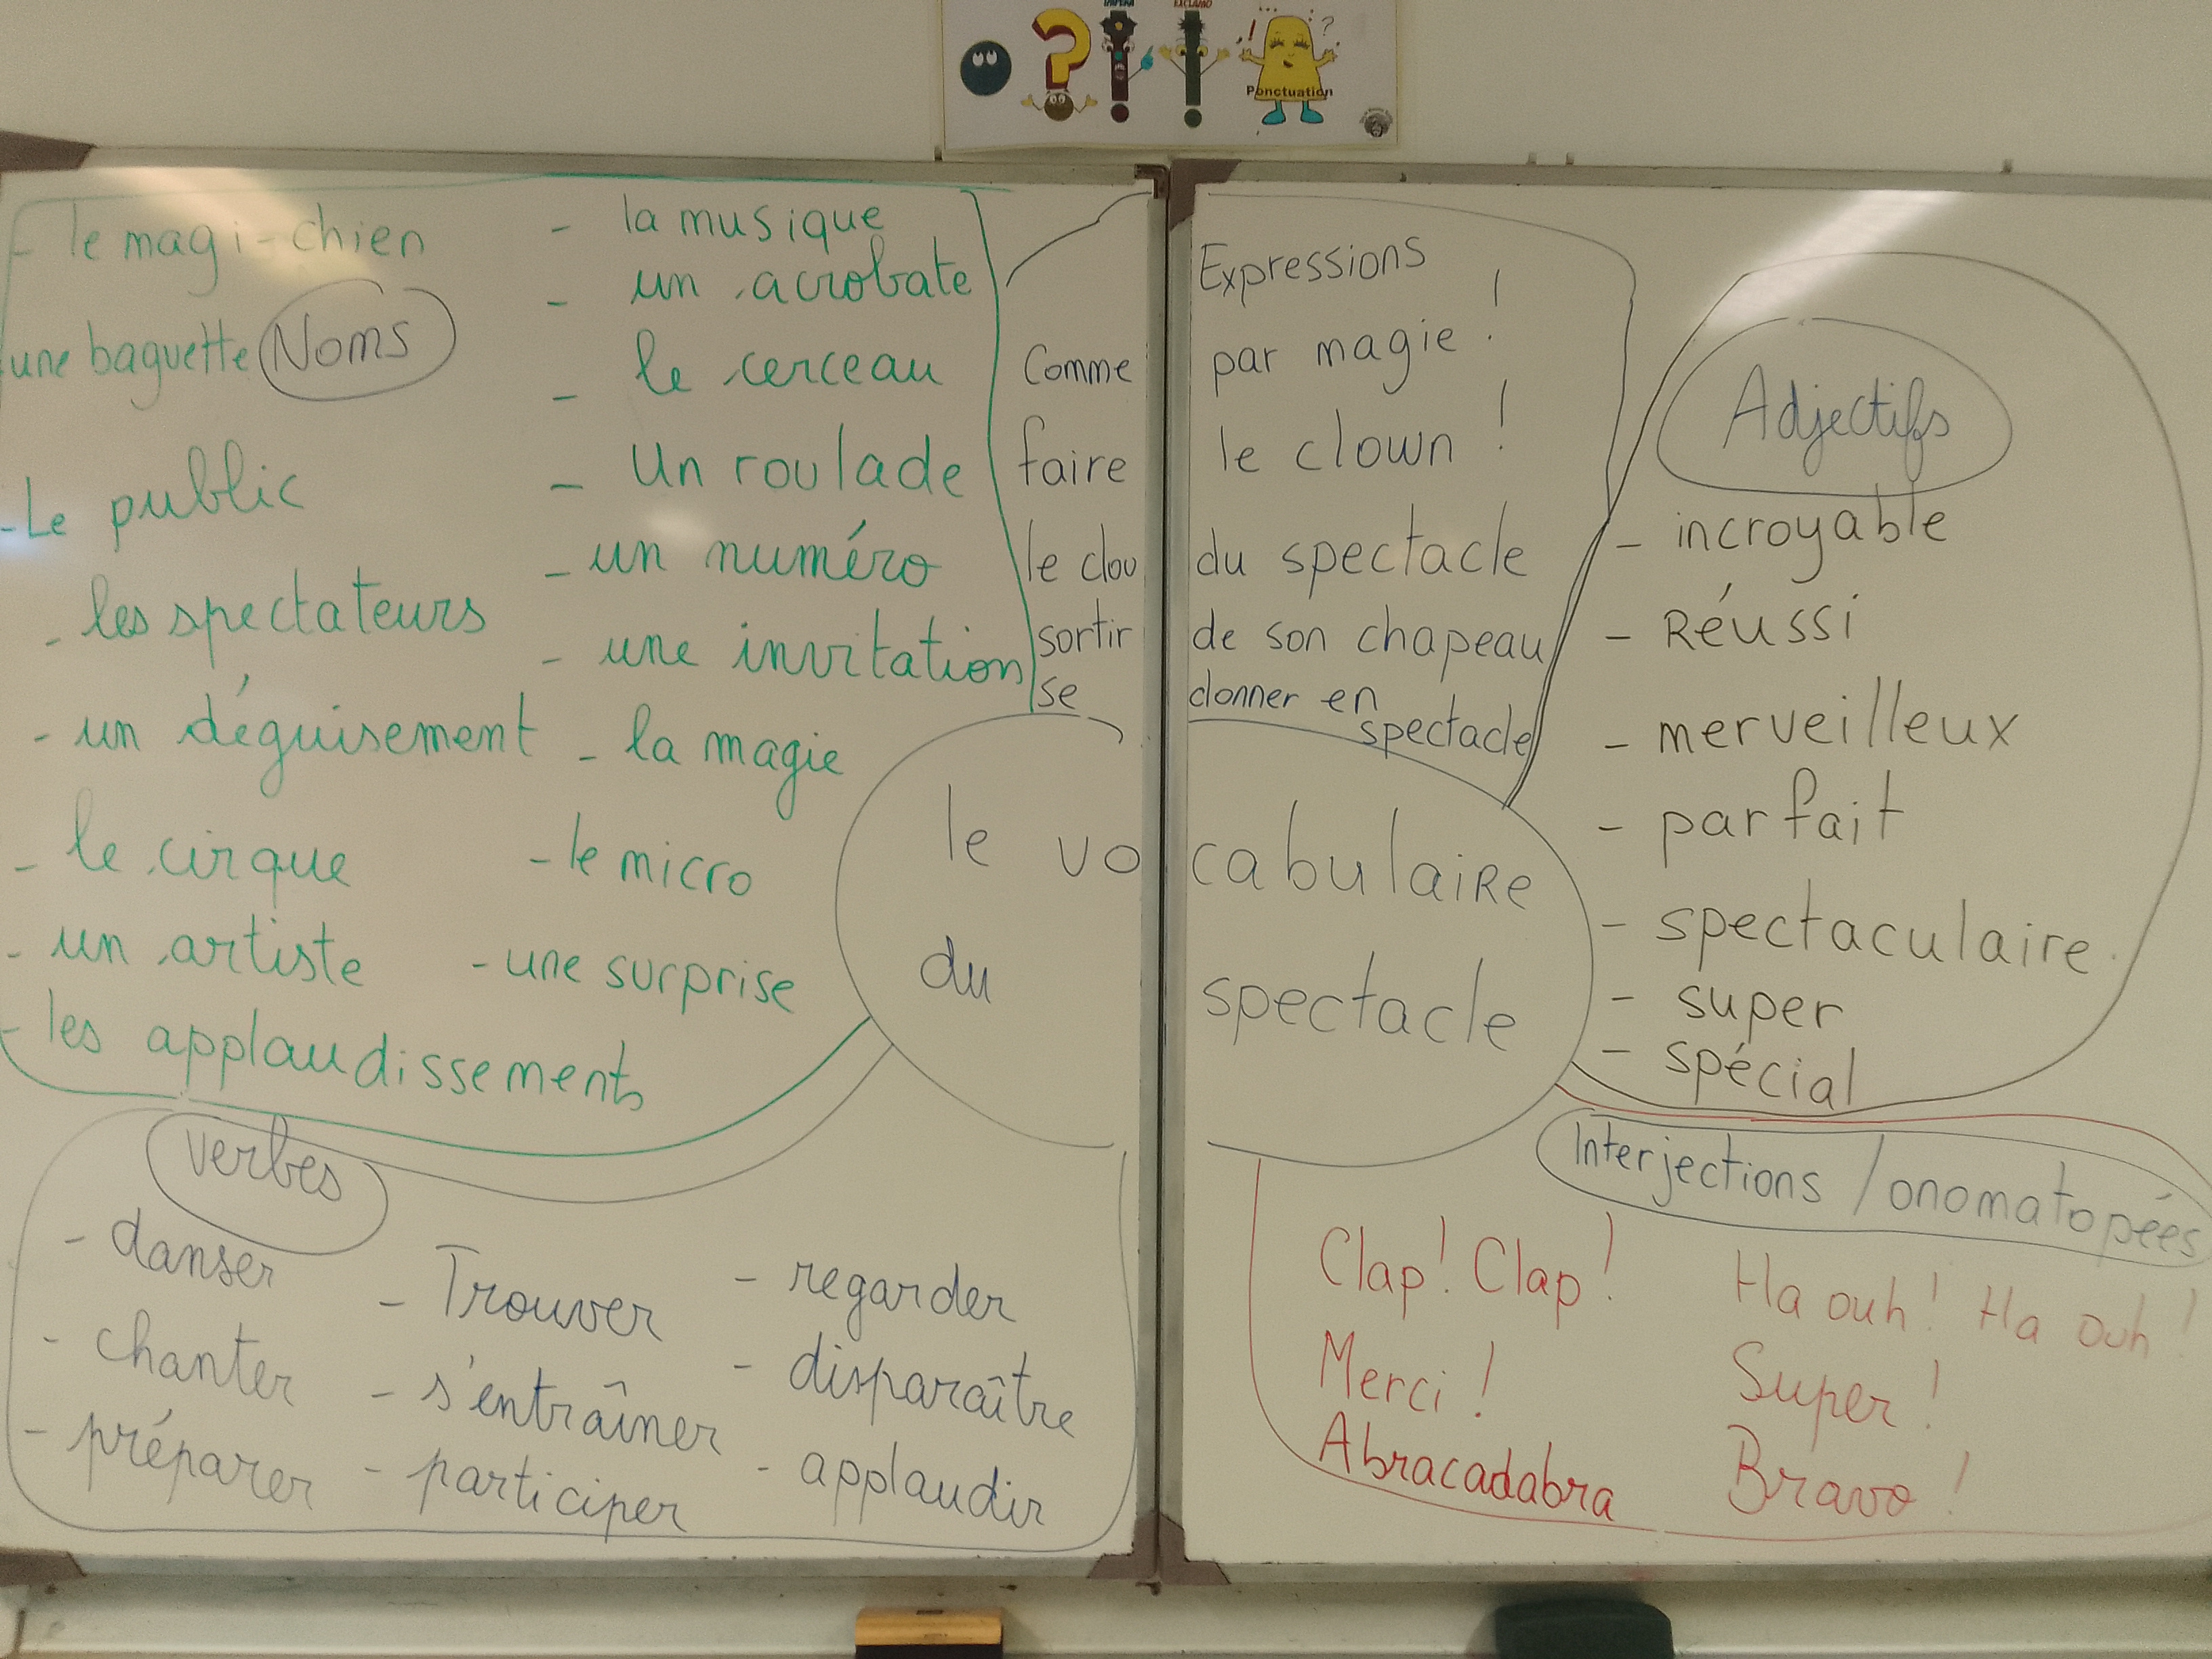 IMPÉRA
EXCLAMO
Ponctuation
- le magi-chien
une baguette
Noms
- Le public
- les spectateurs
- un déguisement
- le cirque
- un artiste
- les applaudissements
- la musique
- un acrobate
- le cerceau
- Un roulade
- un numéro
- une invitation
- la magie
- le micro
- une surprise
Expressions
Comme par magie !
faire le clown !
le clou du spectacle
sortir de son chapeau
se donner en
spectacle
Adjectifs
- incroyable
- Réussi
- merveilleux
- parfait
- spectaculaire
- super
- spécial
le vocabulaire
du spectacle
verbes
- danser
- chanter
- préparer
- Trouver
- s'entraîner
- participer
- regarder
- disparaître
- applaudir
Interjections / onomatopées
Clap ! Clap !
Merci !
Abracadabra
Ha ouh ! Ha ouh !
Super !
Bravo !